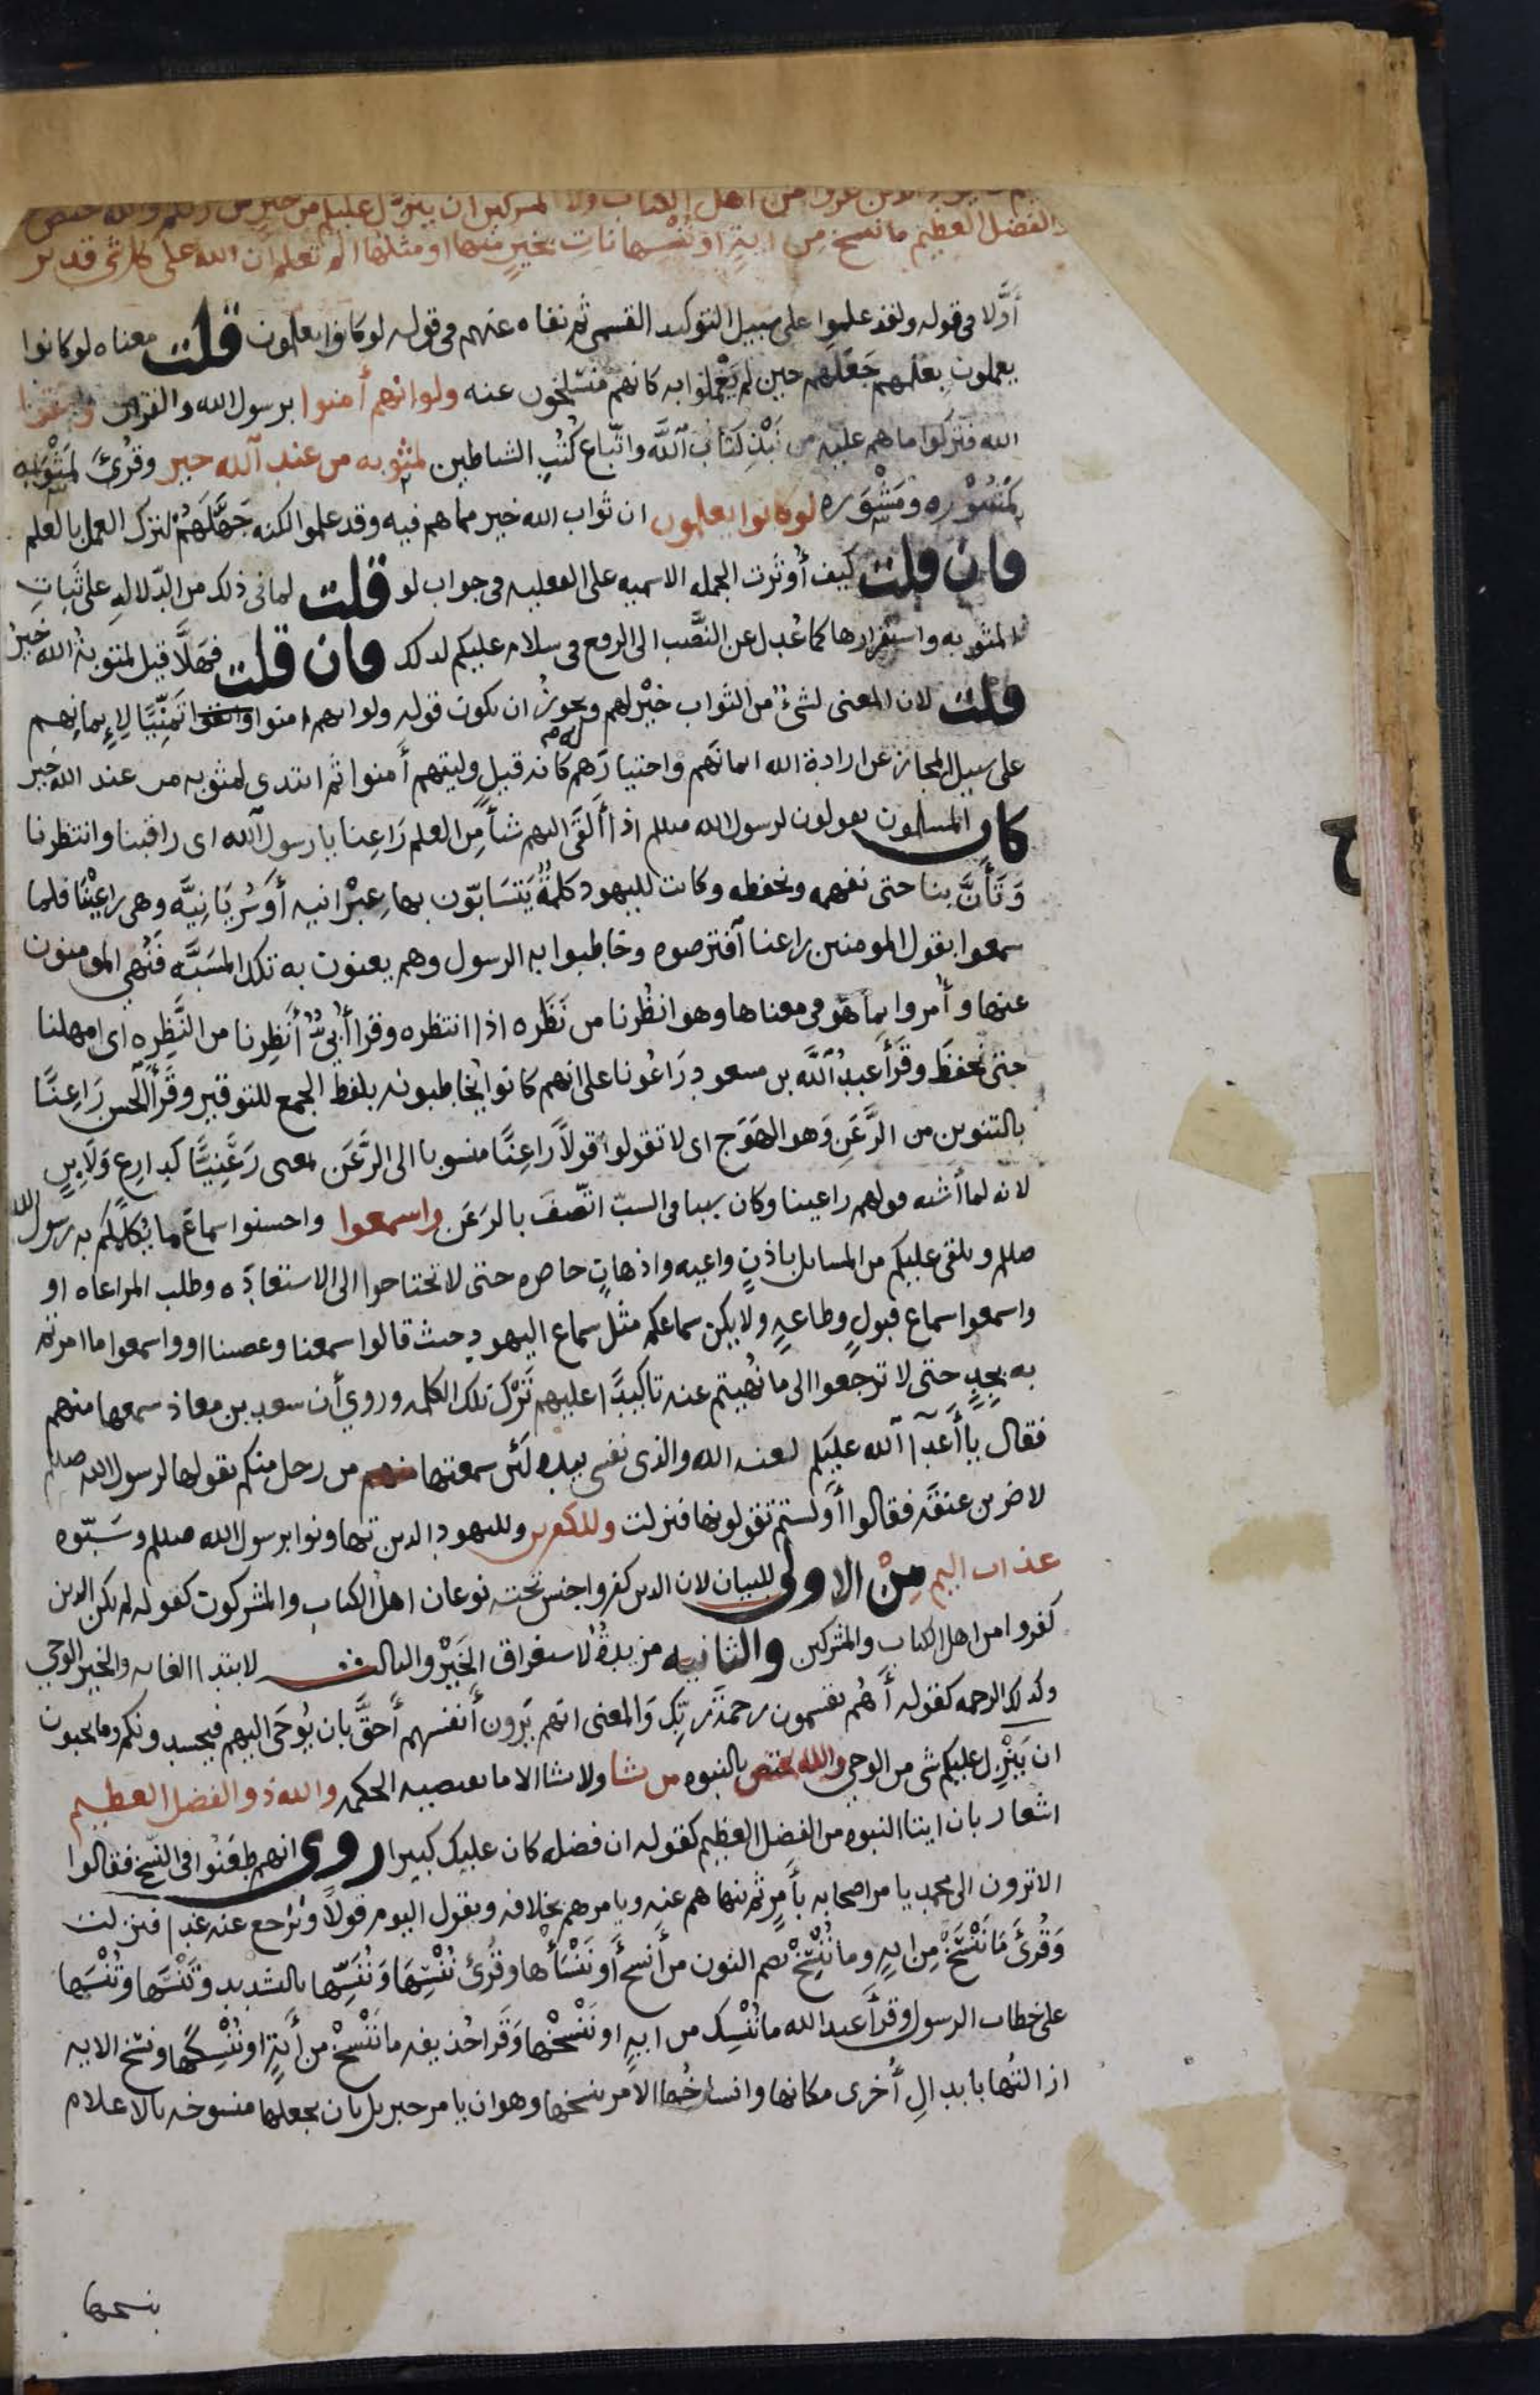 من اهل الكتاب ولا المشركين ان ينزل عليكم من خير من ربكم والله يختص
الفضل العظيم ما ننسخ من اية او ننسها نات بخير منها او مثلها الم تعلم ان الله على كل شى قدير
أوَّلا فى قوله ولقد علموا على سبيل التوكيد القسمى ثم نفاه عنهم فى قوله لو كانوا يعلمون قلت معناه لو كانوا
يعملون بعلمهم جَعَلَهم حين لم يَعْملوا به كانهم مُنسَلِخون عنه ولو انهم أمنوا برسول الله والقران واتقوا
الله فتركوا ما هم عليه من نَبْذِ كتاب الله واتّباع كُتُبِ الشياطين لمثوبه من عند الله خير وقُرِئَ لَمَثْوَبه
كمَشُوْره ومَشْوَره لو كانوا يعلمون ان ثواب الله خير مما هم فيه وقد علموا لكنه جَهَّلَهُمْ لترك العمل بالعلم
فان قلت كيف أُوثرت الجمله الاسميه على الفعليه فى جواب لو قلت لما فى ذلك من الدّلالهِ على ثَباتِ
المثوبه واستقرارها كما عُدِل عن النَّصْب الى الرفع فى سلام عليكم لذلك فان قلت فهَلَّا قيل لمثوبة الله خيرٌ
قلت لان المعنى لشىءٌ من الثواب خيْر لهم ويجوزُ ان يكون قوله ولو انهم امنوا واتقوا تَمنِّيًا لإيمانهم
على سبيل المجاز عن ارادة الله ايمانهم واختيارَهم له كانه قيل وليتهم أمنوا ثم ابتدى لمثوبه من عند الله خير
كان المسلمون يقولون لرسول الله صللم اذا ألقَى اليهم شيأ مِن العلم رَاعِنا يا رسول الله اى راقبنا وانتظرنا
وَتَأَنَّ بنا حتى نفهمه ونحفظه وكانت لليهود كلمةٌ يَتَسَابّون بها عِبْرانيه أو سُرْيَانِيَّه وهى راعِيْنَا فلما
سمعوا بقول المومنين راعنا آفترصوه وخاطبوا به الرسول وهم يعنون به تلك المسَبَّه فَنُهي المومنون
عنها وأُمروا بما هو فى معناها وهو انظُرنا من نَظَره اذا انتظره وقرا أُبىٌّ أَنظِرنا من النَّظِرِه اى امهلنا
حتى نحفظَ وقَرَأ عبدُ الله بن مسعود رَاعُونا على انهم كانوا يخاطبونه بلفظ الجمع للتوقير وقَرأ الحسن رَاعِنًا
بالتنوين من الرَّعَنِ وَهو الهَوَج اى لا تقولوا قولاً رَاعِنًا منسوبا الى الرَّعَن بمعنى رَعَنِيًّا كدارِعٍ وَلَابِنٍ
لانه لما أشبه قولهم راعينا وكان سببا فى السبّ اتّصفَ بالرَعَن واسمعوا واحسنوا سماعَ ما يُكلمكم به رسول الله
صللم ويلقى عليكم من المسايل باذنٍ واعيه واذهانٍ حاضره حتى لا تحتاجوا الى الاستعادَه وطلب المراعاه او
واسمعوا سماع قبولٍ وطاعهٍ ولا يكن سماعكم مثل سماع اليهود حيث قالوا سمعنا وعصينا او واسمعوا ما امرتم
به بجدٍ حتى لا ترجعوا الى ما نُهيتم عنه تاكيدًا عليهم تَرْكَ تلك الكلمه وروي أن سعد بن معاذ سمعها منهم
فقال يا أعدآ الله عليكم لعنه الله والذى نفسى بيده لَئن سمعتها من رجل منكم يقولها لرسول الله صللم
لاضربن عنقَه فقالوا أولستم تقولونها فنزلت وللكفرين ولليهود الذين تهاونوا برسول الله صللم وسَبّوه
عذاب اليم مِنْ الاولى للبيان لان الذين كفروا جنس تحته نوعان اهل الكتاب والمشركون كقوله لم يكن الذين
كفروا من اهل الكتاب والمشركين والثانيه مزيدةٌ لاستغراق الخَيْر والثالثه لابتدا الغايه والخير الوحي
وكذلك الرحمه كقوله أَهُم يقسمون رحمةَ ربّك وَالمعنى انهم يَرون أنفسهم أحقَّ بان يُوحَى اليهم فيحسدونكم وما يحبون
ان يَنْزِل عليكم شى من الوحي والله يختص بالنبوه من يشا ولا يشا الا ما تقتضيه الحكمه والله ذو الفضل العظيم
اشعار بان ايتا النبوه من الفضل العظيم كقوله ان فضله كان عليك كبيرا روى انهم طَعَنُوا فى النسْخ فقالوا
الا ترون الى محمد يامر اصحابه بأَمرٍ ثم ينهاهم عنه ويامرهم بخلافه ويقول اليوم قولاً ويَرجع عنه غدا فنزلت
وَقُرئَ مَا نَنْسَخْ مِن ايه وما نُنْسِخْ بضم النون من أَنسخ أو نَنْسَأْها وقُرئ نُنْسِهَا وَنُنَسِّها بالتشديد وتَنْسَها وتُنْسَها
على خطاب الرسول وقرأ عبد الله ما نُنْسِك من ايهٍ او نَنْسخْها وَقَرا حُذيفه ما نَنْسخْ من أيَةٍ او نُنْسِكَها ونسْخ الايه
ازالتُها بابدالِ أُخرى مكانها وانساخُها الامر بنسخها وهو ان يامر جبريل بان يجعلها منسوخه بالاعلام
بنسخها
ح